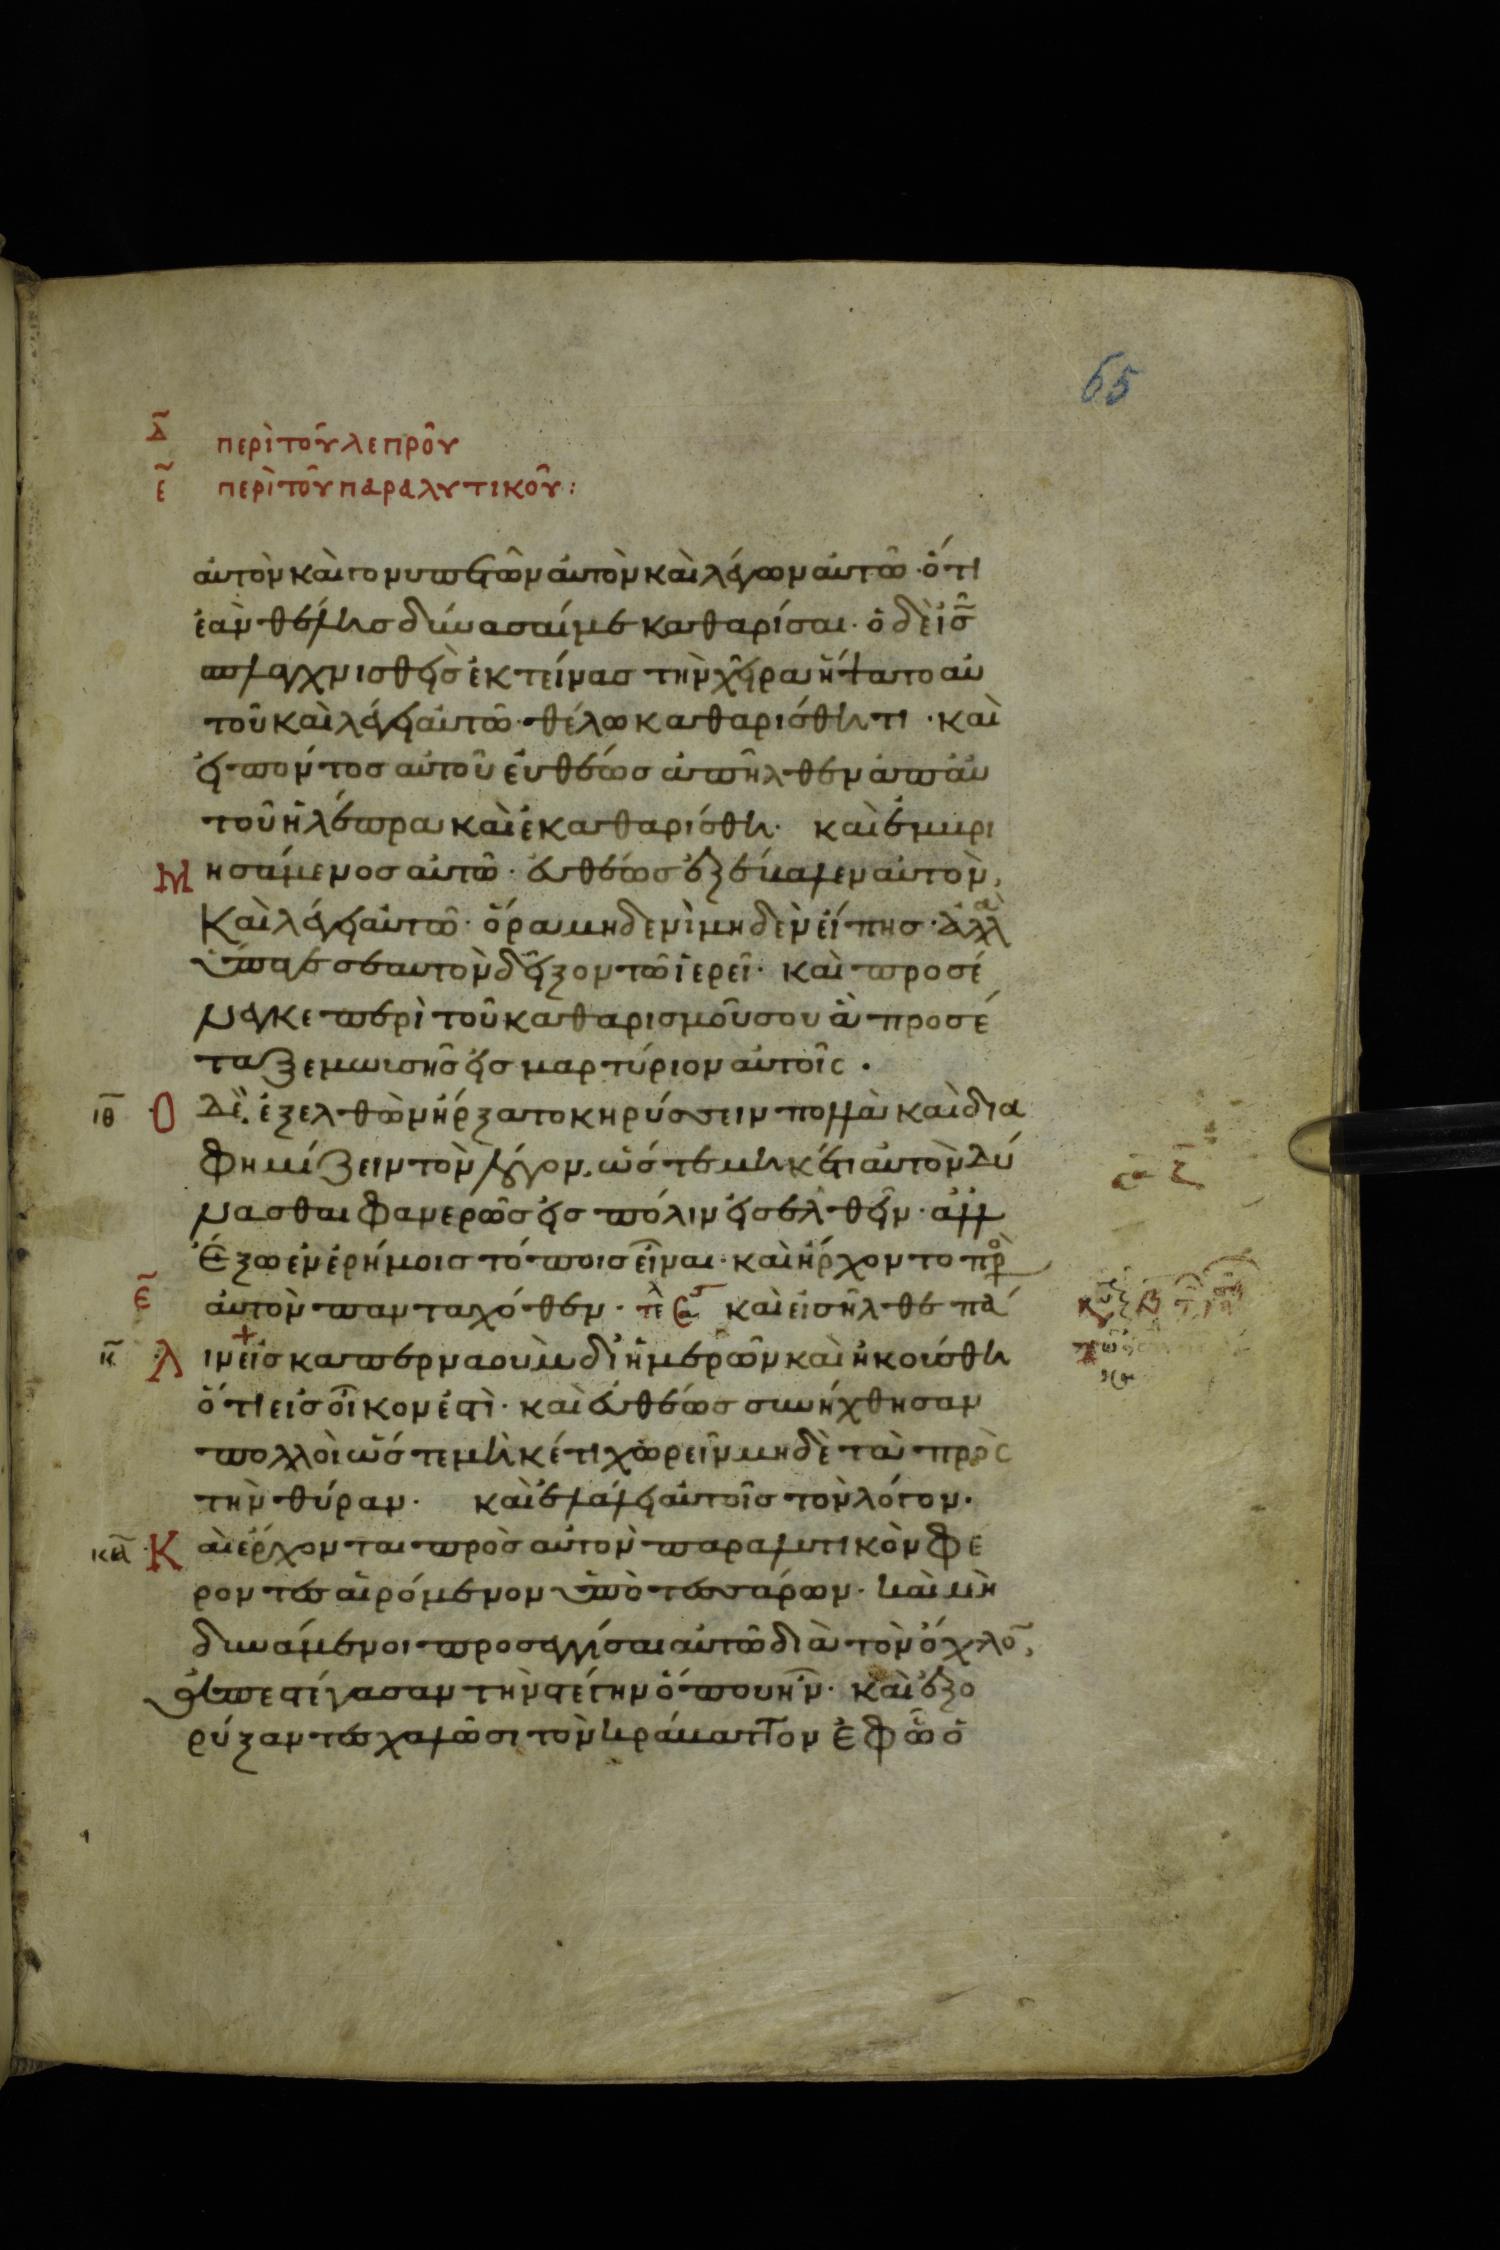 65
δ̄ περὶ τοῦ λεπροῦ
ε̄ περὶ τοῦ παραλυτικοῦ :
αὐτὸν καὶ γονυπετῶν αὐτὸν καὶ λέγων αὐτῶ · ὅτι
ἐὰν θέλης δύνασαί με καθαρίσαι · ὁ δὲ ι̅ς̅
σπλαχνισθεὶς ἐκτείνας τὴν χεῖρα ἥψατο αὐ
τοῦ καὶ λέγει αὐτῶ · θέλω καθαρίσθητι · καὶ
εἰπόντος αὐτοῦ εὐθέως ἀπῆλθεν ἀπ αὐ
τοῦ ἡ λέπρα καὶ ἐκαθαρίσθη · καὶ ἐμβρι
μησάμενος αὐτῶ · εὐθέως ἐξέβαλεν αὐτὸν,
καὶ λέγει αὐτῶ · ὅρα μηδενὶ μηδὲν εἴπης · ἀλλὰ
ὕπαγε σεαυτὸν δεῖξον τῶ ἱερεῖ · καὶ προσέ
νεγκε περὶ τοῦ καθαρισμοῦ σου ἃ προσέ
ταξε μωισῆς εἰς μαρτύριον αὐτοῖς .
ιθ̄ Ο δὲ. ἐξελθὼν ἤρξατο κηρύσσειν πολλὰ καὶ δια
φημίζειν τὸν λόγον, ὥστε μηκέτι αὐτὸν δύ
νασθαι φανερῶς εἰς πόλιν εἰσελθεῖν · ἀλλ
ἔξω ἐν ἐρήμοις τόποις εἶναι · καὶ ἤρχοντο πρὸ
ε̄ αὐτὸν πανταχόθεν · καὶ εἰσῆλθε πά
κ̄ λιν εἰς καπερναοὺμ δι ἡμερῶν καὶ ἠκούσθη
ὅτι εἰς οἶκον ἐστὶ · καὶ εὐθέως συνήχθησαν
πολλοὶ ὥστε μηκέτι χωρεῖν μηδὲ τὰ πρὸς
τὴν θύραν · καὶ ἐλάλει αὐτοῖς τὸν λόγον ·
κᾱ Καὶ ἔρχονται πρὸς αὐτὸν παραλυτικὸν φέ
ροντες αἰρόμενον ὑπὸ τεσσάρων · καὶ μὴ
δυνάμενοι προσεγγίσαι αὐτῶ διὰ τὸν ὄχλο̄,
ἀπεστέγασαν τὴν στέγην ὅπου ἦν · καὶ ἐξο
ρύξαντες χαλῶσι τὸν κράματτον ἐφ ᾧ ὁ